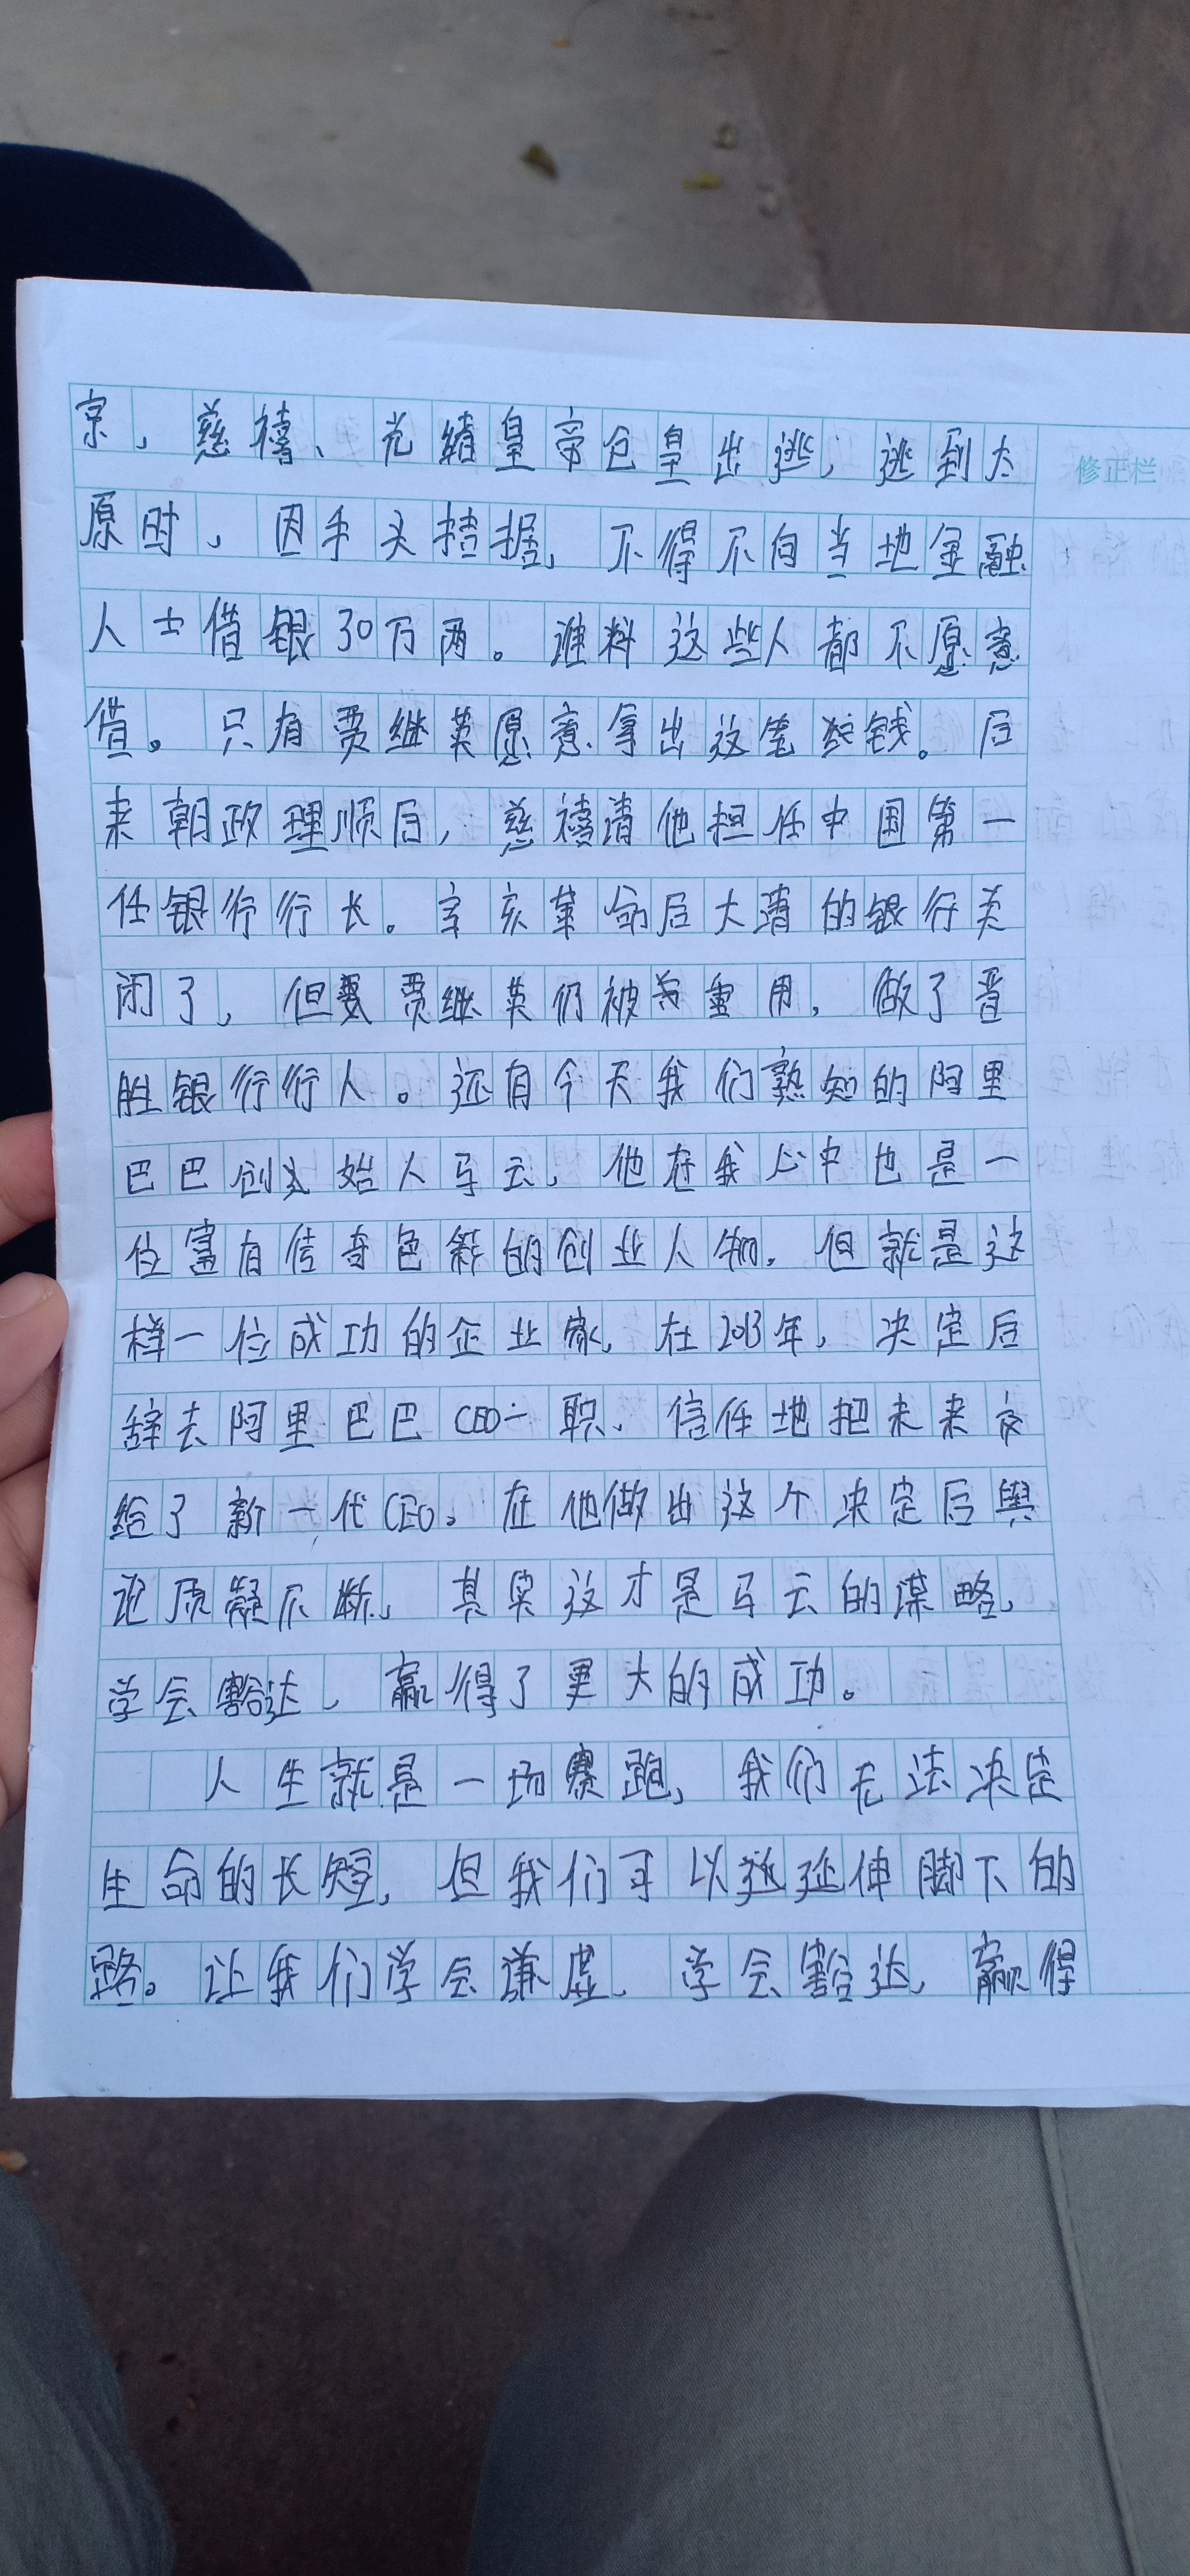 京，慈禧、光绪皇帝仓皇出逃，逃到太
修正栏
原时，因手头拮据，不得不向当地金融
人士借银30万两。谁料这些人都不愿意
借。只有贾继英愿意拿出这笔钱。后
来朝政理顺后，慈禧请他担任中国第一
任银行行长。辛亥革命后大清的银行关
闭了，但贾继英仍被重用，做了晋
胜银行行人。还有今天我们熟知的阿里
巴巴创始人马云，他在我心中也是一
位富有传奇色彩的创业人物。但就是这
样一位成功的企业家，在2013年，决定后
辞去阿里巴巴CEO一职、信任地把未来交
给了新一代CEO。在他做出这个决定后舆
论质疑不断，其实这才是马云的谋略，
学会豁达，赢得了更大的成功。
人生就是一场赛跑，我们无法决定
生命的长短，但我们可以延伸脚下的
路。让我们学会谦虚、学会豁达，赢得